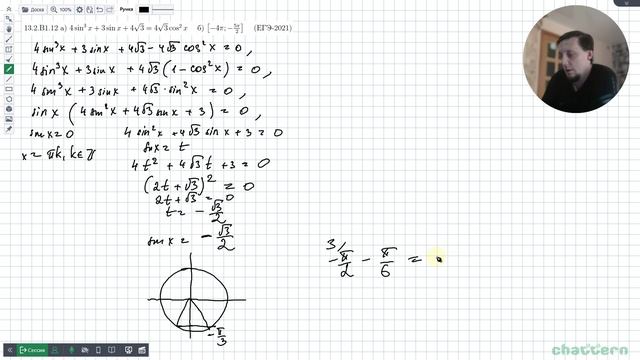 Ручка
13.2.B1.12 a) 4 sin³ x + 3 sin x + 4√3 = 4√3 cos² x б) [−4π; −5π/2] (ЕГЭ-2021)
4 sin³x + 3 sin x + 4√3 − 4√3 cos²x = 0,
4 sin³x + 3 sin x + 4√3 (1 − cos²x) = 0,
4 sin³x + 3 sin x + 4√3 · sin²x = 0,
sin x (4 sin²x + 4√3 sin x + 3) = 0,
sin x = 0 4 sin²x + 4√3 sin x + 3 = 0
x = πk, k ∈ ℤ sin x = t
4t² + 4√3 t + 3 = 0
(2t + √3)² = 0
2t + √3 = 0
t = − √3/2
sin x = − √3/2
3/
− π/2 − π/6 =
− π/3
Сессия
chattern